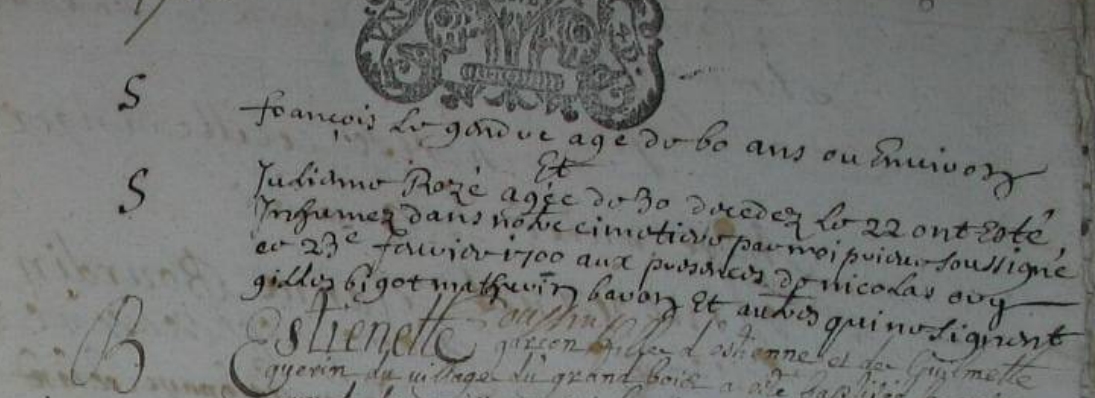 S
françois le gendre age de 60 ans ou Environ
Et
S
Julienne Rozé agée de 30 decedez le 22 ont Esté
Inhumez dans notre cimetiere par moi prieur soussigné
ce 23e fevrier 1700 aux presences de nicolas ory
gilles bigot mathurin baron Et autres qui ne signent
B
Estienette garçon fille d'estienne et de Guillmette
guerin du village du grand bois a esté